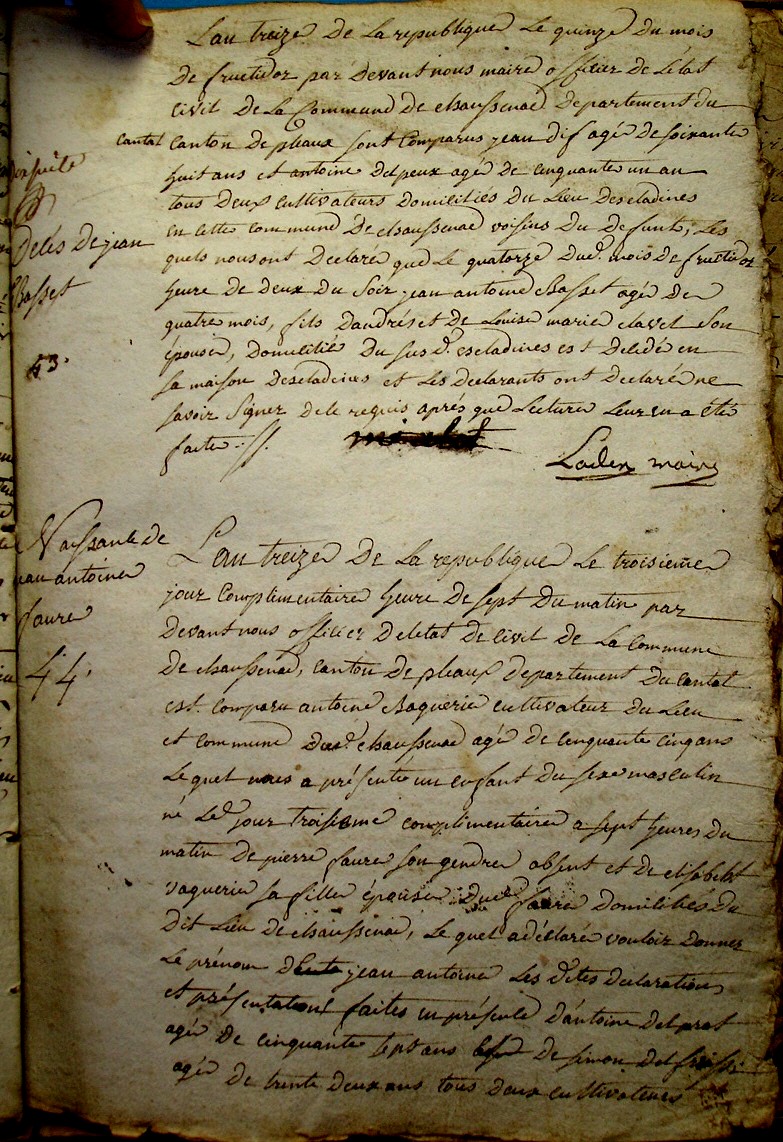 L'an treize De La republique Le quinze du mois
de fructidor par devant nous maire officier de L'état
civil De La Commune De chaussenac Departement du
cantal canton De pleaux sont Comparus jean dif agé De soixante
huit ans et antoine delpeux agé De cinquante un an
tous Deux cultivateurs Domiciliés Du Lieu Descladines
en cette commune De chaussenac voisins Du Defunt, Les
quels nous ont Declaré que Le quatorze Dud. mois de fructidor
heure de deux du Soir jean antoine Basset agé De
quatre mois, fils D'andré et De Louise marie clavel Son
épouse, Domicilié Du susd. escladines est Décédé en
sa maison Descladines et Les Declarants ont Declaré ne
savoir Signer De ce requis aprés que Lecture Leur en a été
faite
Laden maire
Décés De jean
Basset
43.
Naissance de
jean antoine
faure
44.
L'an treize De La republique Le troisieme
jour Complimentaire heure De sept Du matin par
Devant nous officier De letat De civil De La Commune
De chaussenac, canton De pleaux Departement Du cantal
est Comparu antoine Baquerie cultivateur Du Lieu
et commune Dud. chaussenac agé De cinquante cinq ans
Le quel nous a présenté un enfant Du sexe masculin
né Led. jour troisieme complimentaire a sept heures Du
matin De pierre faure son gendre absent et De elisabeth
vaquerie sa fille épouse Dud. faure Domiciliés Du
Dit Lieu De chaussenac, Le quel a déclaré vouloir Donner
Le prénom De jean antoine Les dites declarations
et présentations faites en présence D'antoine delprat
agé De cinquante sept ans De simon
agé De trente Deux ans tous Deux cultivateurs